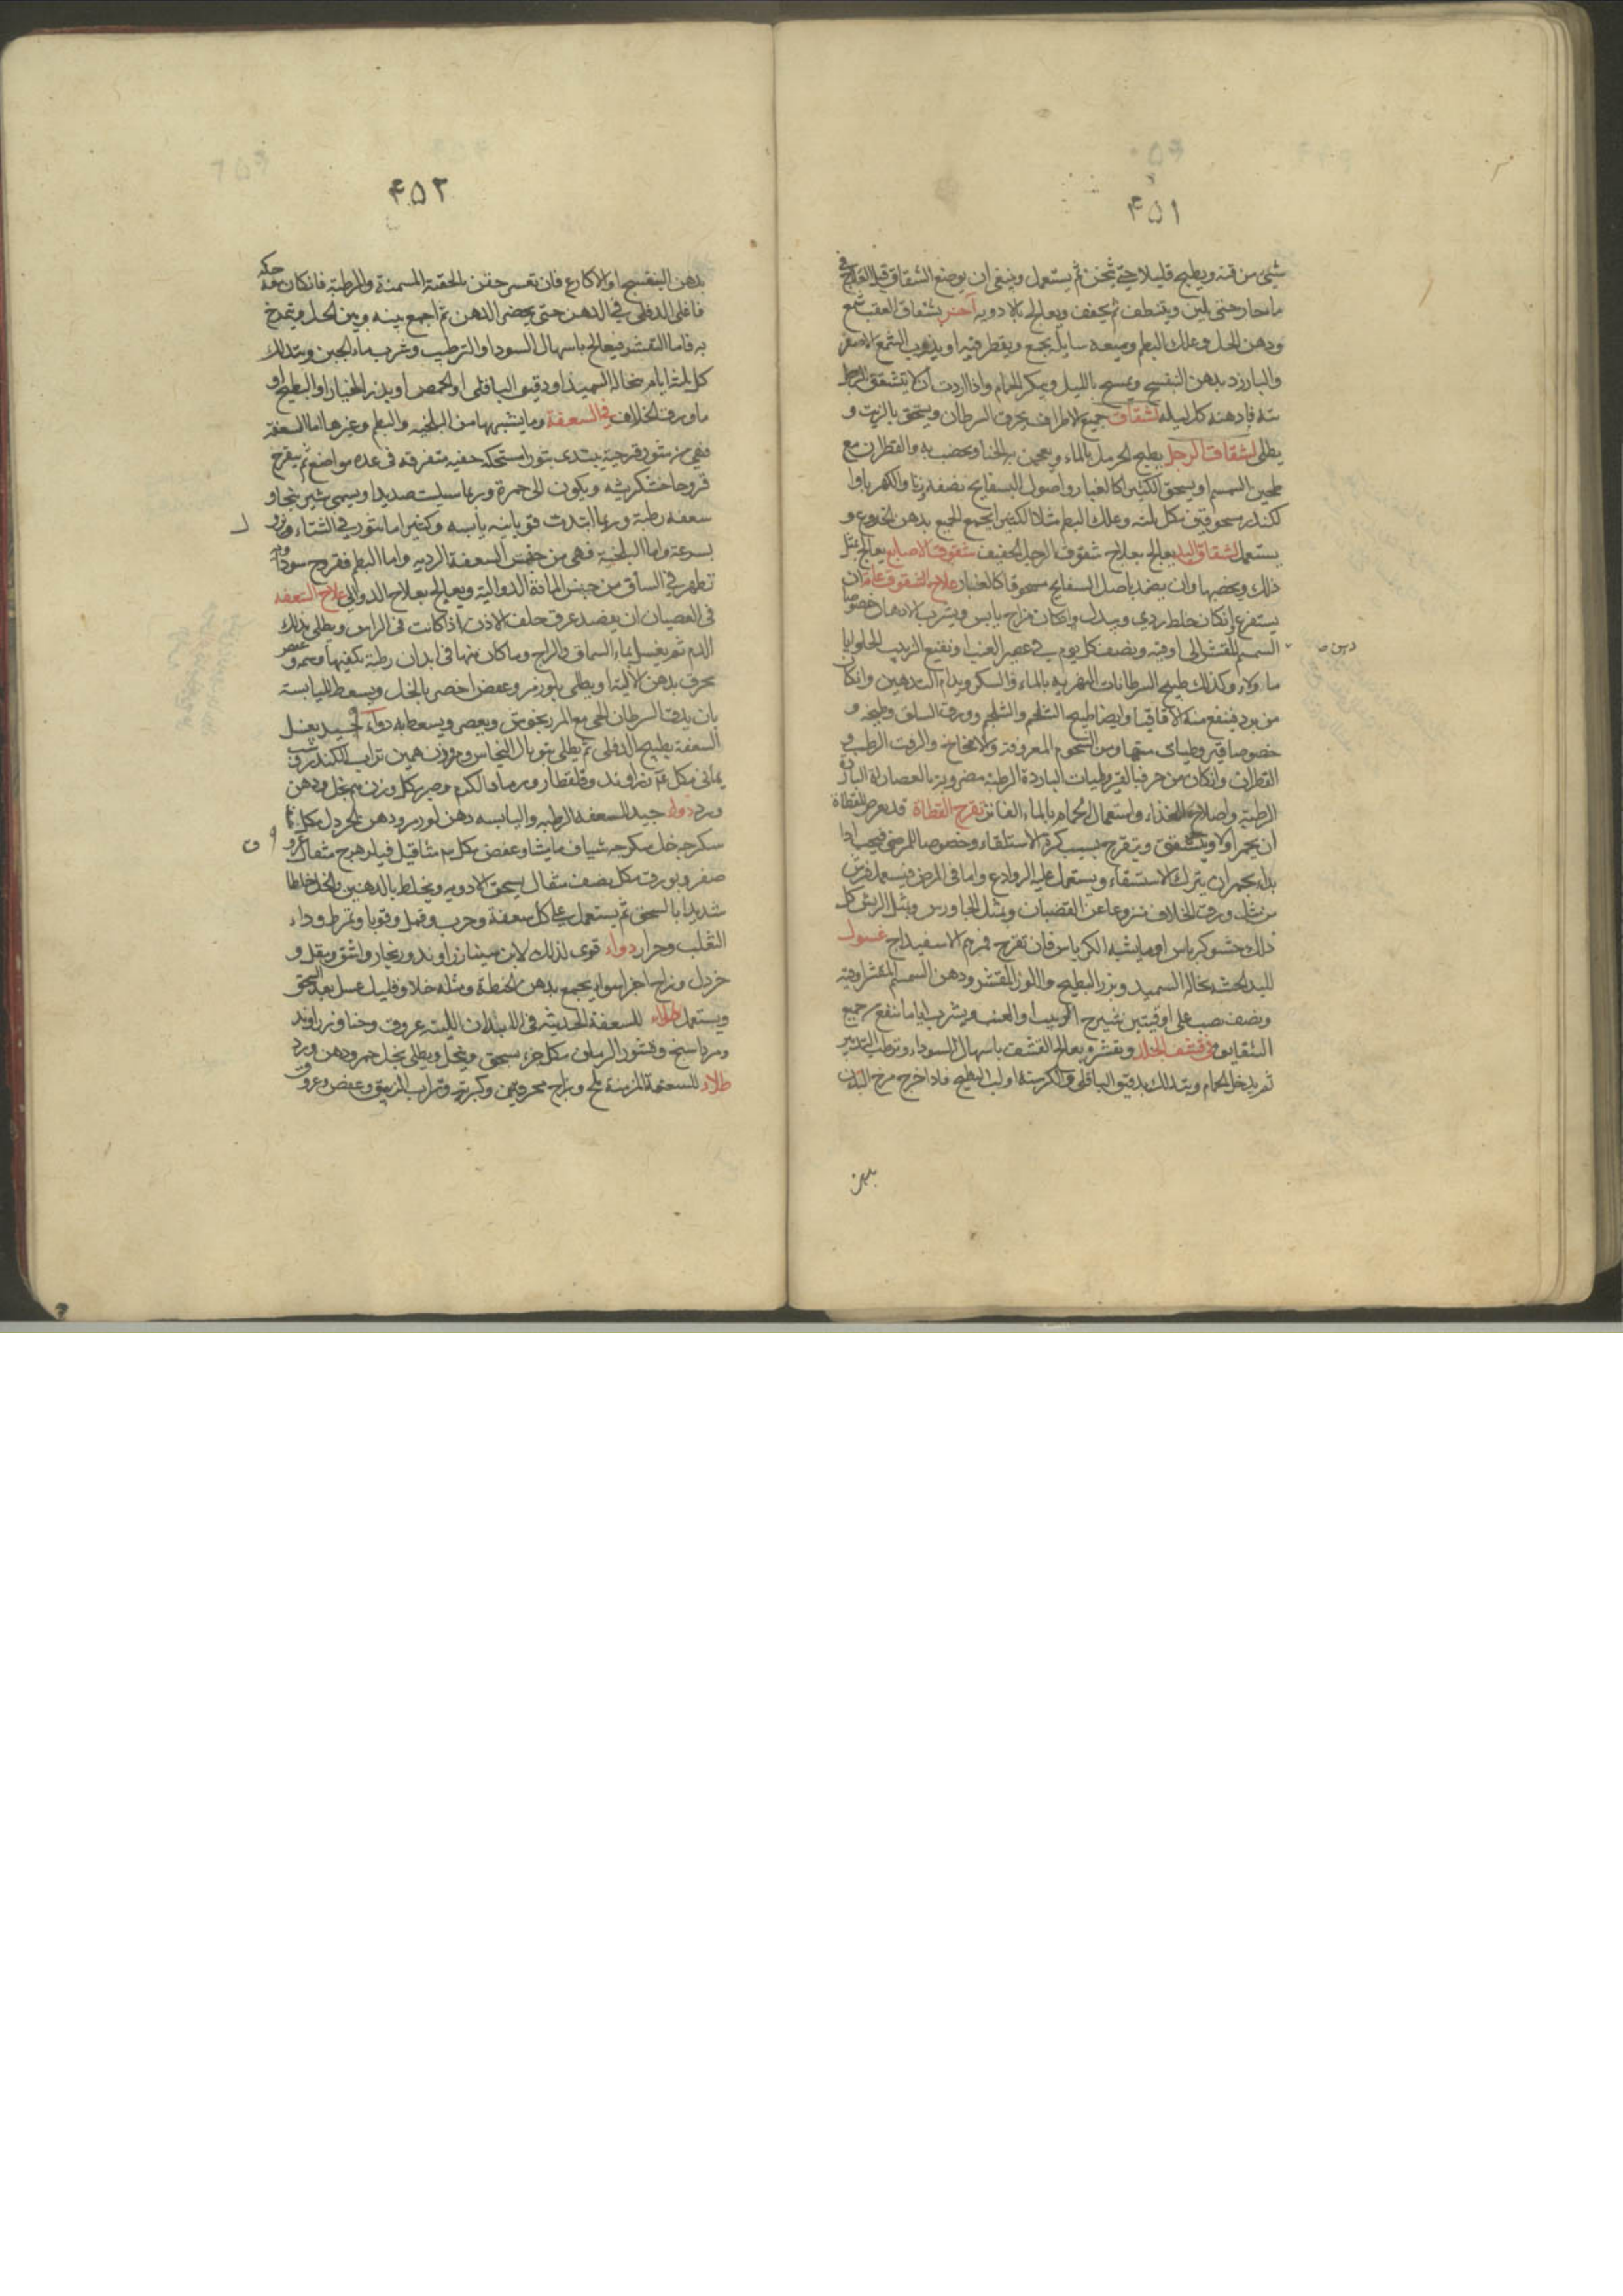 ۴۵۱
شيئ من قنه ويطبخ قليلا حتى يثخن ثم يستعمل وينبغى ان يوضع الشقاق قبل العلاج فى
ماء حار حتى يلين وينظف ثم يجفف ويعالج بالادويه آخر لشقاق العقب شمع
ودهن الخل وعلك البطم وميعه سايله يجمع ويقطر فيه او يذوب الشمع الاصفر
والبارزد بدهن البنفسج ويمسح بالليل ويبكر الحمام واذا اردت ان لا يتشقق الرجل
سنة فادهنه كل ليله لشقاق جميع الاطراف يحرق السرطان ويسحق بالزيت و
يطلى لشقاق الرجل يطبخ الحرمل بالماء ويعجن به الحنا ويخضب به والقطران مع
طحين السمسم او يسحق الكثيرا كالغبار واصول البسفايج نصفه وزنا والكهربا وا
لكندر مسحوقين بكل ثلثه وعلك البطم مثلا الكثيرا يجمع الجميع بدهن الخروع و
يستعمل لشقاق اليد يعالج بعلاج شقوق الرجل الخفيف شقوق الاصابع يعالج بمثل
ذلك ويخضبها وان يضمد باصل البسفايج مسحوقا كالغبار علاج الشقوق عامة ان
يستفرغ ان كان خلط ردى ويبدل وان كان مزاج يابس ويشرب الادهان خصوصا
السمسم المقشر الى اوقيه ونصف كل يوم فى عصير العنب او نقيع الزبيب الحلو اياما
ولاء وكذلك طبيخ السرطانات النهريه بالماء والسكر ويدام التدهين وان كان
من برد فينفع منه الاقاقيا وايضا طبيخ الشلجم والشلجم وورق السلق وطبيخه و
خصوصا قيروطيات متخذة من الشحوم المعروفة والامخاخ والزفت الرطب و
القطران وان كان من حر فبالقيروطيات الباردة الرطبة مضروبة بالعصارات الباردة
الرطبة واصلاح الغذاء واستعمال الحمام بالماء الفاتر تقرح القطاة قد يعرض للقطاة
ان يحمر اولا ويتشقق ويتقرح بسبب كثرة الاستلقاء وخصوصا للمرضى فيجب اذا
بداء يحمر ان يترك الاستلقاء ويستعمل عليه الروادع واما فى المرض فيستعمل فرش
من مثل ورق الخلاف منزوعا عن القضبان ومثل الجاورس ومثل الريش كل
ذلك حشو كرباس او ما يشبه الكرباس فان تقرح فمرهم الاسفيداج غسول
لليد الخشنة نخالة السميد وبزر البطيخ واللوز المقشر ودهن السمسم المقشر اوقيه
ونصف يصب على اوقيتين نقيع الزبيب او العنب ويشرب اياما نفع جميع
الشقاق فى قشف الجلد وتقشره يعالج القشف باسهال السوداء وترطيب التدبير
ثم يدخل الحمام ويتدلك بدقيق الباقلى والكرسنه او لب البطيخ فاذا خرج مرخ البدن
بدهن
۴۵۲
بدهن البنفسج او الاكارع فان تعسر حقن بالحقنة المسمنة والمرطبة فان كان معه حكه
فاغلى الدفلى فى الدهن حتى يخضر الدهن ثم اجمع بينه وبين الخل ويتمرخ
به فاما التقشر فيعالج باسهال السودا والترطيب وشرب ماء الجبن ويتدلك
كل ثلثة ايام بنخالة السميد او دقيق الباقلى او الحمص او بزر الخيار او البطيخ او
ماورق الخلاف فى السعفة وما يشبهها من البلخيه والبطم وغيرها اما السعفة
فهى من بثور قرحية يبتدى بثورا مستحكه خفيه متفرقه فى عده مواضع ثم يتقرح
قروحا خشكريشه ويكون الى حمرة وربما سيلت صديدا ويسمى شيرينجا و
سعفه رطبة وربما ابتدت قوبائيه يابسه وكثيرا ما يثور فى الشتاء ويزول
بسرعة واما البلخية فهى من جنس السعفة الرديه واما البطم فقروح سوداويه
تظهر فى الساق من جنس المادة الدوالية ويعالج بعلاج الدوالى علاج السعفه
فى الصبيان ان يفصد عرق خلف الاذن اذا كانت فى الراس ويطلى بذلك
الدم ثم يغسل بماء السماق والزاج وما كان منها فى ابدان رطبة يكفيها
محرق بدهن الالية او يطلى بلوز مر وعفص اخضر بالخل ويسعط لليابسة
بان يدق السرطان الحى مع المرزنجوش ويعصر ويسعط به دواء جيد يغسل
السعفة بطبيخ الدفلى ثم يطلى بتوبال النحاس ومر وزن درهمين تراب الكندر وشب
يمانى بكل زراوند وقلقطار ورماد الكرم وصبر بكل وزن درهم بخل ودهن
ورد دواء جيد للسعفه الرطبه واليابسه دهن لوز مر ودهن الخردل بكل
سكرجه خل سكرجه شياف ماميثا وعفص بكل مثاقيل فيلزهرج مثقال عروق
صفر وبورق بكل نصف مثقال يسحق الادويه ويخلط بالدهنين والخل خلطا
شديدا بالسحق ثم يستعمل على كل سعفة وجرب وقمل وقوبا وتمرط وداء
الثعلب وحزاز دواء قوى لذلك لابن ميشا زراوند وزنجار واشق ومقل و
خردل وزاج اجزا سواء يجمع بدهن الحنطة ومثله خلا وقليل عسل بعد السحق
ويستعمل طلاء للسعفة الحديثه فى الابدان اللينه عروق وحنا وزراوند
ومرداسنج وقشور الرمان بكل جزء يسحق وينخل ويطلى بخل خمر ودهن ورد
طلاء للسعفة المزمنة ملح وزاج محرقين وكبريت وتراب الزيبق وعفص وعروق